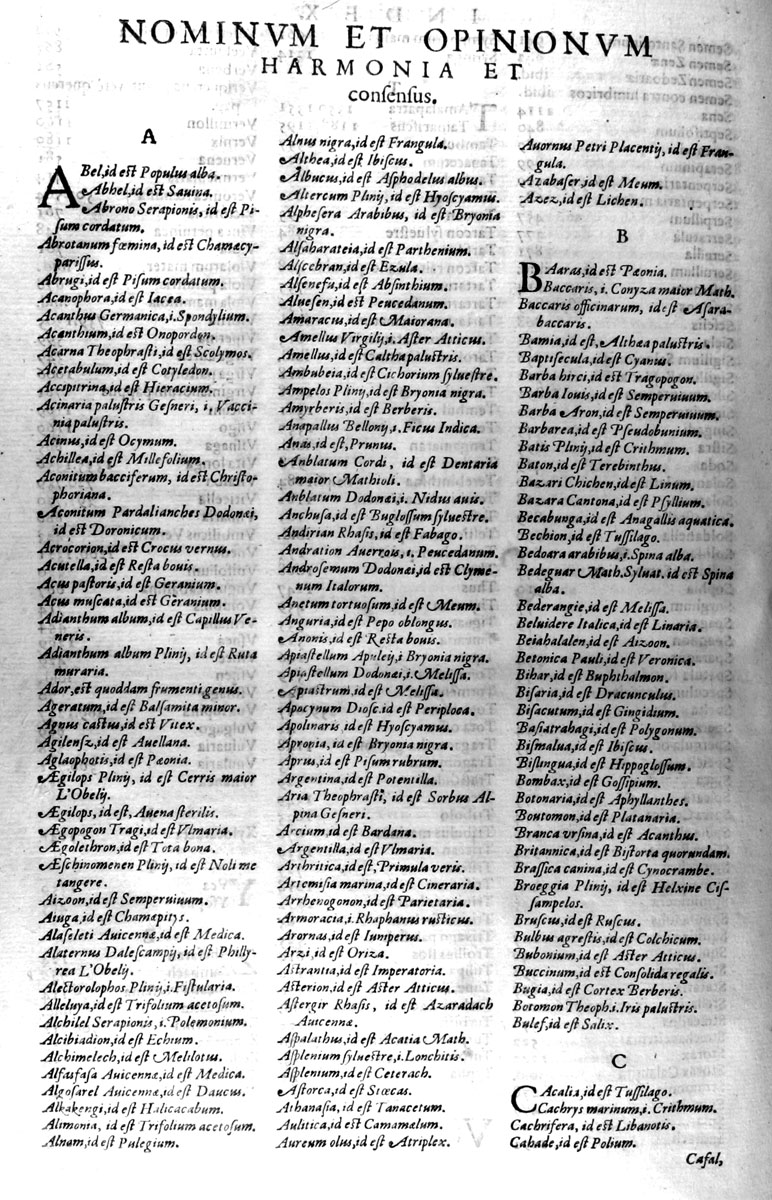 NOMINVM ET OPINIONVM
HARMONIA ET
consensus.
A
ABel, id est Populus alba.
Abhel, id est Sauina.
Abrono Serapionis, id est Pi-
sum cordatum.
Abrotanum fœmina, id est Chamæcy-
parissus.
Abrugi, id est Pisum cordatum.
Acanophora, id est Iacea.
Acanthus Germanica, i. Spondylium.
Acanthium, id est Onopordon.
Acarna Theophrasti, id est Scolymos.
Acetabulum, id est Cotyledon.
Accipitrina, id est Hieracium.
Acinaria palustris Gesneri, i, Vacci-
nia palustris.
Acinus, id est Ocymum.
Achillea, id est Millefolium.
Aconitum bacciferum, id est Christo-
phoriana.
Aconitum Pardalianches Dodonæi,
id est Doronicum.
Acrocorion, id est Crocus vernus.
Acutella, id est Resta bouis.
Acus pastoris, id est Geranium.
Acus muscata, id est Geranium.
Adianthum album, id est Capillus Ve-
neris.
Adianthum album Plinij, id est Ruta
muraria.
Ador, est quoddam frumenti genus.
Ageratum, id est Balsamita minor.
Agnus castus, id est Vitex.
Agilensz, id est Auellana.
Aglaophotis, id est Pæonia.
Ægilops Plinij, id est Cerris maior
L'Obelij.
Ægilops, id est, Auena sterilis.
Ægopogon Tragi, id est Vlmaria.
Ægolethron, id est Tota bona.
Æschinomenen Plinij, id est Noli me
tangere.
Aizoon, id est Semperuiuum.
Aiuga, id est Chamæpitys.
Alaseleti Auicennæ, id est Medica.
Alaternus Dalescampij, id est Philly-
rea L'Obelij.
Alectorolophos Plinij, i. Fistularia.
Alleluya, id est Trifolium acetosum.
Alchilel Serapionis, i. Polemonium.
Alcibiadion, id est Echium.
Alchimelech, id est Melilotus.
Alfasfasa Auicennæ, id est Medica.
Algosarel Auicennæ, id est Daucus.
Alkakengi, id est Halicacabum.
Alimonia, id est Trifolium acetosum.
Alnam, id est Pulegium.
Alnus nigra, id est Frangula.
Althea, id est Ibiscus.
Albucus, id est Asphodelus albus.
Altercum Plinij, id est Hyoscyamus.
Alphesera Arabibus, id est Bryonia
nigra.
Alsaharateia, id est Parthenium.
Alscebran, id est Ezula.
Alsenefu, id est Absinthium.
Aluesen, id est Peucedanum.
Amaracus, id est Maiorana.
Amellus Virgilij, i. Aster Atticus.
Amellus, id est Caltha palustris.
Ambubeia, id est Cichorium syluestre.
Ampelos Plinij, id est Bryonia nigra.
Amyrberis, id est Berberis.
Anapallus Bellonij, i. Ficus Indica.
Anas, id est, Prunus.
Anblatum Cordi, id est Dentaria
maior Mathioli.
Anblatum Dodonæi, i. Nidus auis.
Anchusa, id est Buglossum syluestre.
Andirian Rhasis, id est Fabago.
Andration Auerrois, i. Peucedanum.
Androsemum Dodonæi, id est Clyme-
num Italorum.
Anetum tortuosum, id est Meum.
Anguria, id est Pepo oblongus.
Anonis, id est Resta bouis.
Apiastellum Apuleij, i Bryonia nigra.
Apiastellum Dodonæi, i. Melissa.
Apiastrum, id est Melissa.
Apocynum Diosc. id est Periploca.
Apolinaris id est Hyoscyamus.
Apronia, id est Bryonia nigra.
Aprus, id est Pisum rubrum.
Argentina, id est Potentilla.
Aria Theophrasti, id est Sorbus Al-
pina Gesneri.
Arcium, id est Bardana.
Argentilla, id est Vlmaria.
Arthritica, id est, Primula veris.
Artemisia marina, id est Cineraria.
Arrhenogonon, id est Parietaria.
Armoracia, i. Rhaphanus rusticus.
Arornas, id est Iuniperus.
Arzi, id est Oriza.
Astrantia, id est Imperatoria.
Asterion, id est Aster Atticus.
Astergir Rhasis, id est Azaradach
Auicennæ.
Aspalathus, id est Acatia Math.
Asplenium syluestre, i. Lonchitis.
Asplenium, id est Ceterach.
Astorca, id est Stœcas.
Athanasia, id est Tanacetum.
Aulitica, id est Camamælum.
Aureum olus, id est Atriplex.
Auornus Petri Placentij, id est Fran-
gula.
Azabaser, id est Meum.
Azez, id est Lichen.
B
BAaras, id est Pæonia.
Baccaris, i. Conyza maior Math.
Baccaris officinarum, id est Asara-
baccaris.
Bamia, id est, Althæa palustris.
Baptisecula, id est Cyanus.
Barba hirci, id est Tragopogon.
Barba Iouis, id est Semperuiuum.
Barba Aron, id est Semperuiuum.
Barbarea, id est Pseudobunium.
Batis Plinij, id est Crithmum.
Baton, id est Terebinthus.
Bazari Chichen, id est Linum.
Bazara Cantona, id est Psyllium.
Becabunga, id est Anagallis aquatica.
Bechion, id est Tussilago.
Bedoara arabibus, i. Spina alba.
Bedeguar Math. Syluat. id est Spina
alba.
Bederangie, id est Melissa.
Beluidere Italica, id est Linaria.
Beiahalalen, id est Aizoon.
Betonica Pauli, id est Veronica.
Bihar, id est Buphthalmon.
Bisaria, id est Dracunculus.
Bisacutum, id est Gingidium.
Basiatrahagi, id est Polygonum.
Bismalua, id est Ibiscus.
Bislingua, id est Hippoglossum.
Bombax, id est Gossipium.
Botonaria, id est Aphyllanthes.
Boutomon, id est Platanaria.
Branca vrsina, id est Acanthus.
Britannica, id est Bistorta quorundam.
Brassica canina, id est Cynocrambe.
Broeggia Plinij, id est Helxine Cis-
sampelos.
Bruscus, id est Ruscus.
Bulbus agrestis, id est Colchicum.
Bubonium, id est Aster Atticus.
Buccinum, id est Consolida regalis.
Bugia, id est Cortex Berberis.
Botomon Theoph. i. Iris palustris.
Bulef, id est Salix.
C
CAcalia, id est Tussilago.
Cachrys marinum, i. Crithmum.
Cachrifera, id est Libanotis.
Cahade, id est Polium.
Cafal,